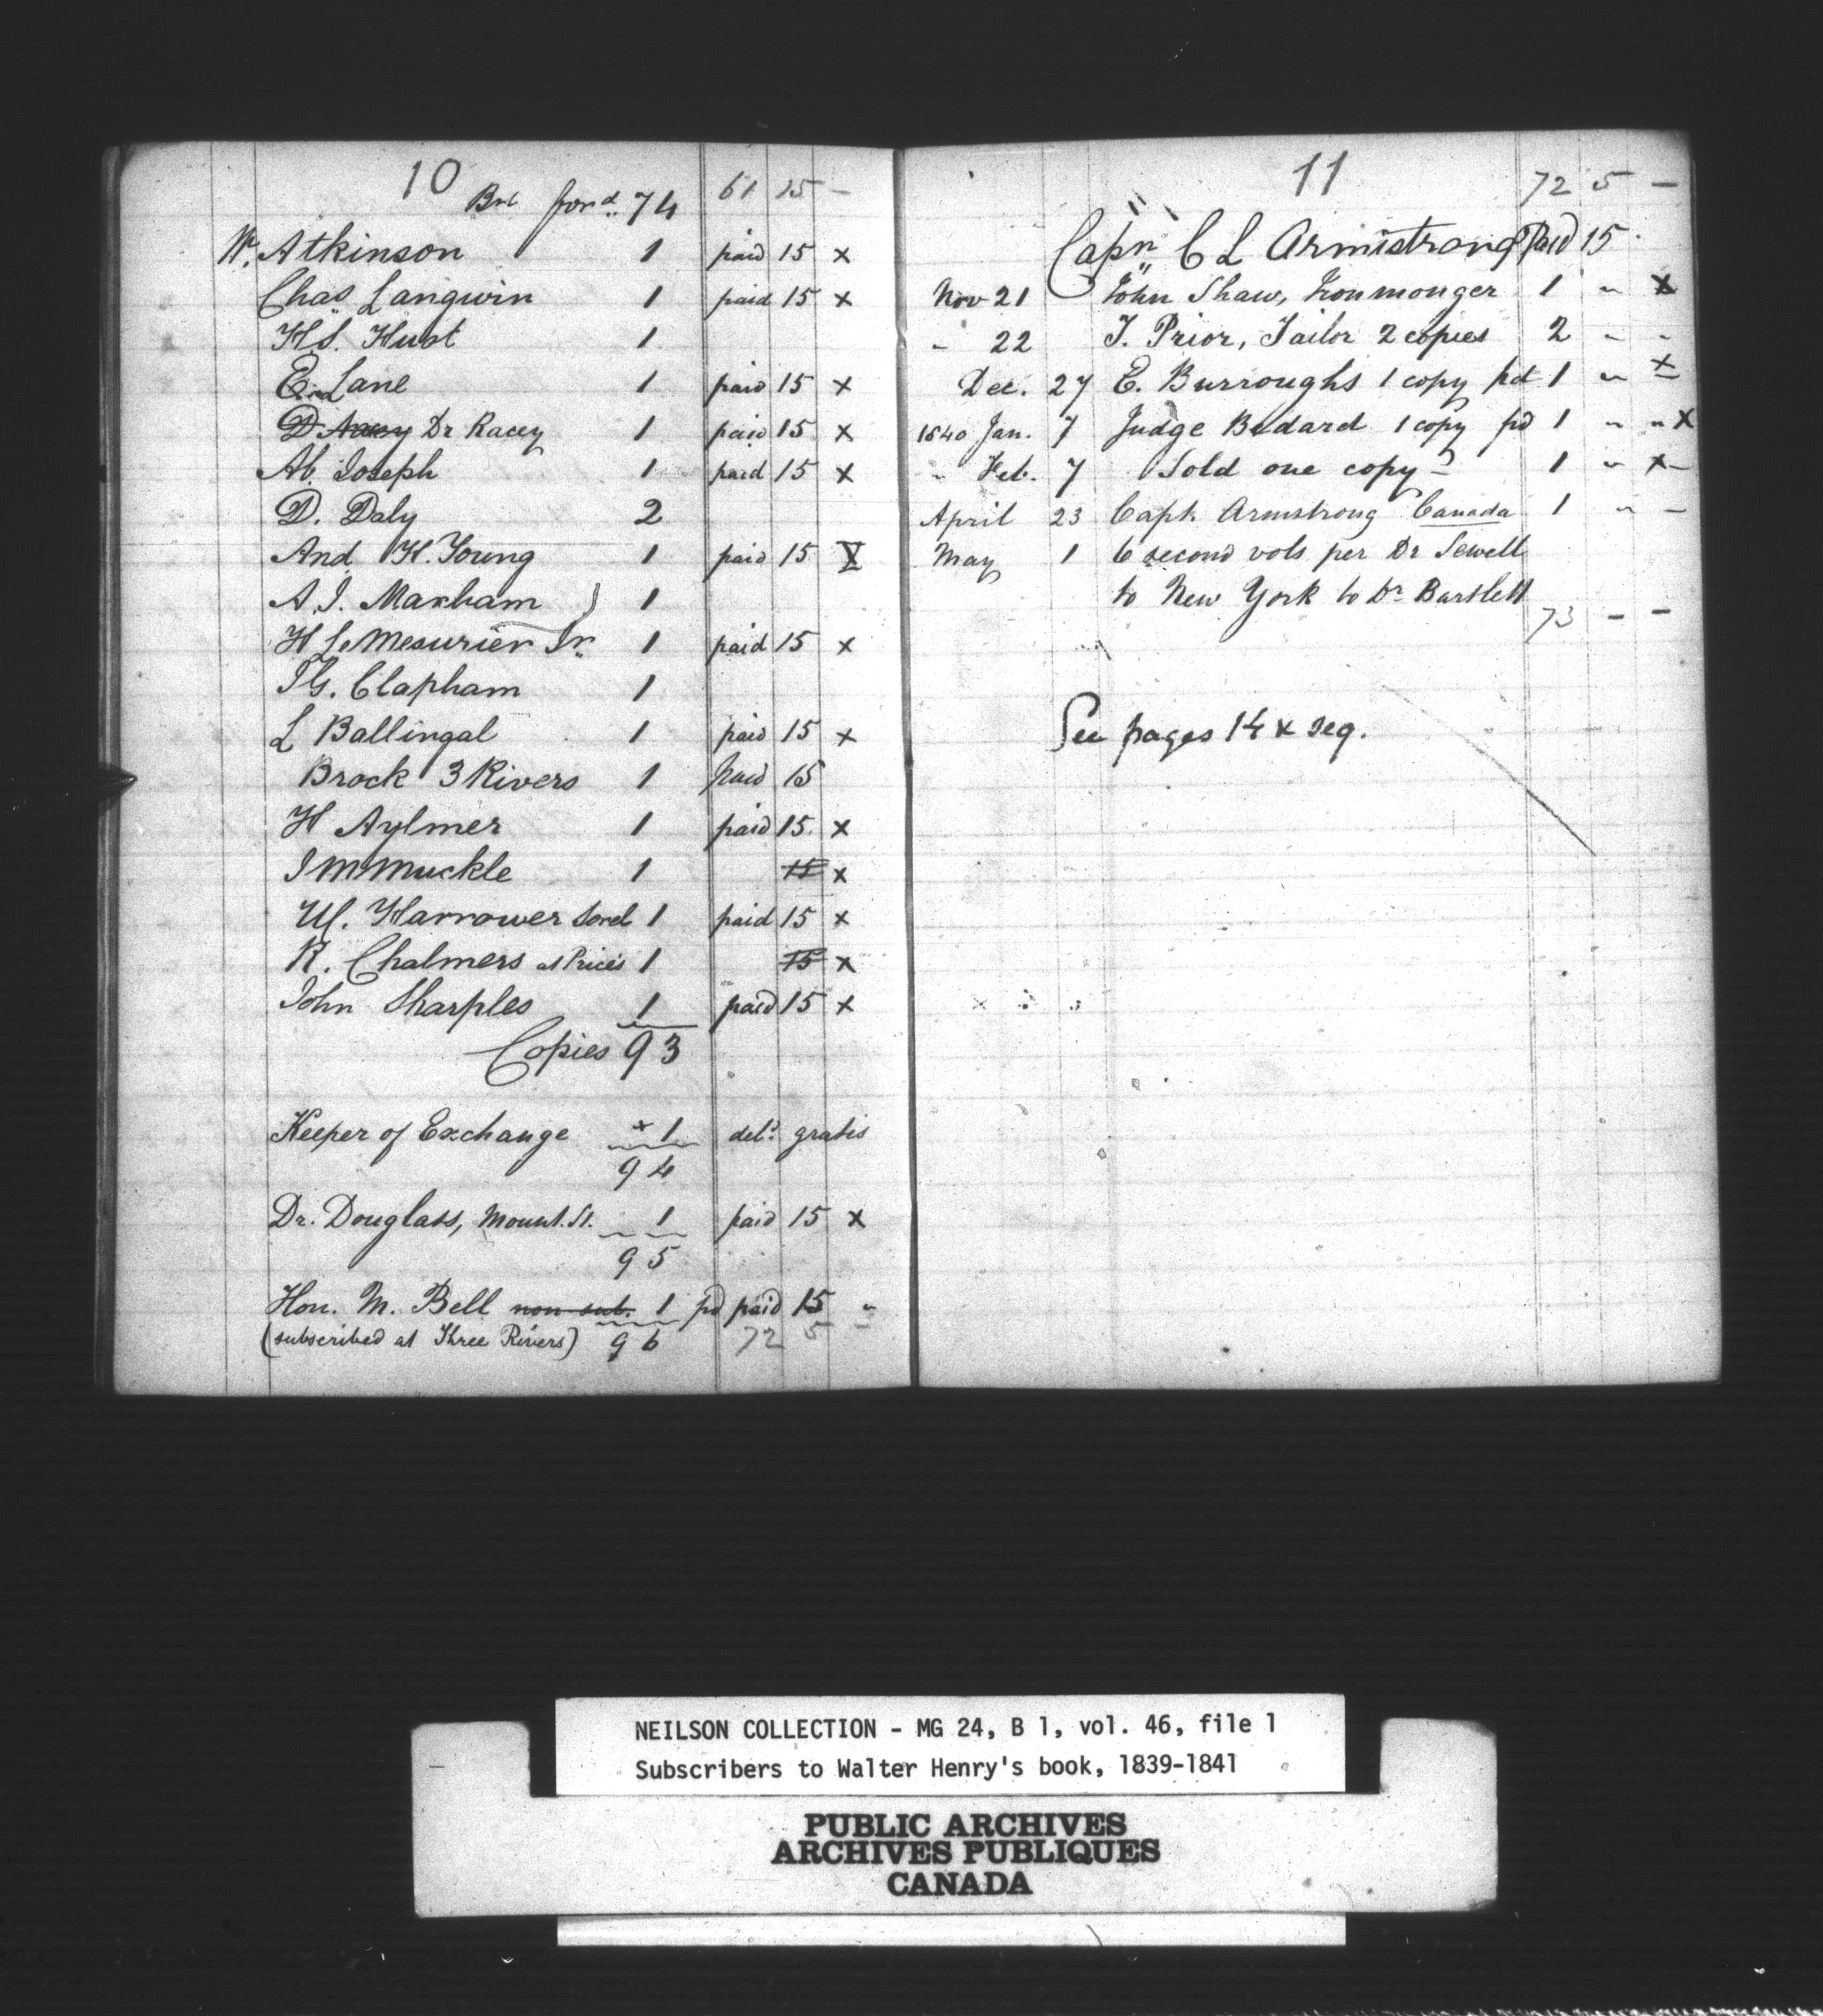 10
Brt ford 74 61 15 –
W. Atkinson 1 paid 15 x
Chas Langwin 1 paid 15 x
H.S. Hunt 1
E. Lane 1 paid 15 x
Dr Racey 1 paid 15 x
Ab. Joseph 1 paid 15 x
D. Daly 2
And H. Young 1 paid 15 X
A.J. Maxham 1
H LeMesurier Jr. 1 paid 15 x
J G. Clapham 1
L Ballingal 1 paid 15 x
Brock 3 Rivers 1 paid 15
H Aylmer 1 paid 15 x
J M Muckle 1 15 x
W. Harrower Sorel 1 paid 15 x
R. Chalmers at Price's 1 15 x
John Sharples 1 paid 15 x
Copies 93
Keeper of Exchange x 1 deld gratis
94
Dr. Douglass, Mount. St. 1 paid 15 x
95
Hon. M. Bell non sub. 1 pd paid 15 "
(subscribed at Three Rivers) 96 72 5 –
11
72 5 –
Capn C L Armstrong Paid 15
Nov 21 John Shaw, Ironmonger 1 " x
" 22 T. Prior, Tailor 2 copies 2 - -
Dec. 27 E. Burroughs 1 copy pd 1 " x
1840 Jan. 7 Judge Bedard 1 copy pd 1 " " x
" Feb. 7 Sold one copy – 1 " x –
April 23 Capt. Armstrong Canada 1 " –
May 1 6 second vols per Dr Sewell
to New York to Dr Bartlett
73 – –
See pages 14 & seq.
NEILSON COLLECTION - MG 24, B 1, vol. 46, file 1
Subscribers to Walter Henry's book, 1839-1841
PUBLIC ARCHIVES
ARCHIVES PUBLIQUES
CANADA